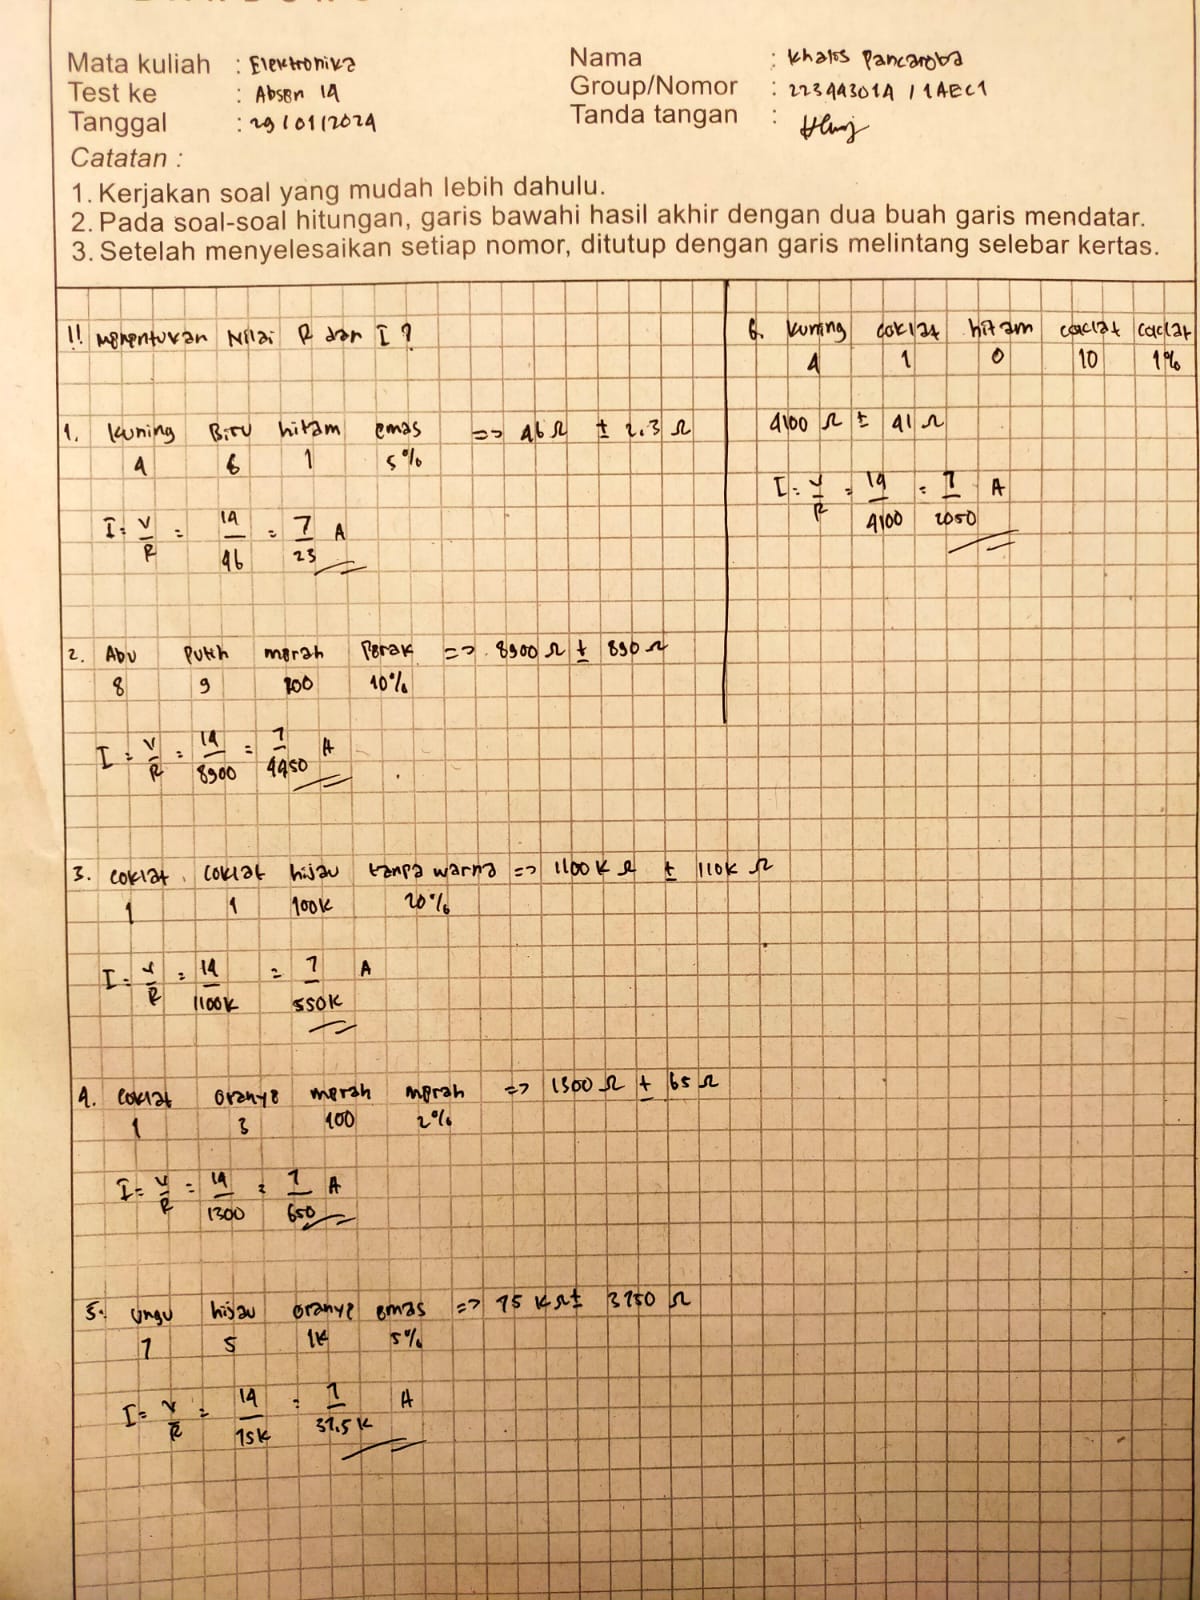 Mata kuliah : Elektronika
Test ke : Absen 14
Tanggal : 29/01/2024
Nama : Khalos Pancaroba
Group/Nomor : 223443014 / 1AEC1
Tanda tangan :
Catatan :
1. Kerjakan soal yang mudah lebih dahulu.
2. Pada soal-soal hitungan, garis bawahi hasil akhir dengan dua buah garis mendatar.
3. Setelah menyelesaikan setiap nomor, ditutup dengan garis melintang selebar kertas.
!! Menentukan Nilai R dan I ?
1. Kuning Biru hitam emas => 46 Ω ± 2,3 Ω
4 6 1 5%
I = V/R = 14/46 = 7/23 A
2. Abu Putih merah Perak => 8900 Ω ± 890 Ω
8 9 100 10%
I = V/R = 14/8900 = 7/4450 A
3. coklat coklat hijau tanpa warna => 1100K Ω ± 110K Ω
1 1 100K 20%
I = V/R = 14/1100K = 7/550K A
4. coklat oranye merah merah => 1300 Ω ± 65 Ω
1 3 100 2%
I = V/R = 14/1300 = 7/650 A
5. Ungu hijau oranye emas => 75 KΩ ± 3750 Ω
7 5 1K 5%
I = V/R = 14/75K = 7/37,5K A
6. Kuning coklat hitam coclat coclat
4 1 0 10 1%
4100 Ω ± 41 Ω
I = V/R = 14/4100 = 7/2050 A